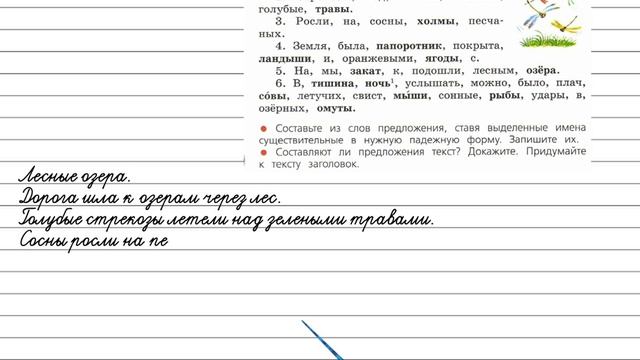 голубые, травы.
3. Росли, на, сосны, холмы, песча-
ных.
4. Земля, была, папоротник, покрыта,
ландыши, и, оранжевыми, ягоды, с.
5. На, мы, закат, к, подошли, лесным, озёра.
6. В, тишина, ночь¹, услышать, можно, было, плач,
со́вы, летучих, свист, мы́ши, сонные, рыбы, удары, в,
озёрных, омуты.
• Составьте из слов предложения, ставя выделенные имена
существительные в нужную падежную форму. Запишите их.
• Составляют ли предложения текст? Докажите. Придумайте
к тексту заголовок.
Лесные озера.
Дорога шла к озерам через лес.
Голубые стрекозы летели над зелеными травами.
Сосны росли на пе